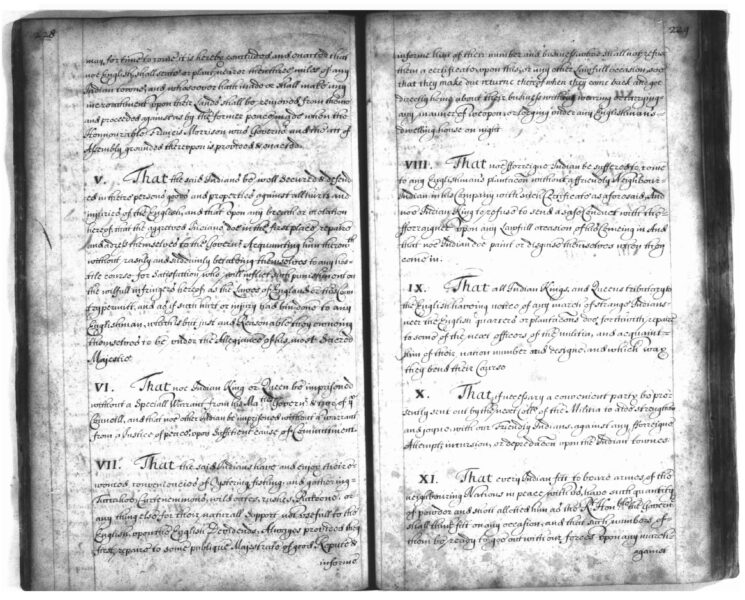 228
may, for time to come, it is hereby concluded and enacted that
noe English, shall seate or plant nearer then three miles of any
Indian towne, and whosoever hath made or shall make any
incroachment upon their Lands shall be removed from thence
and proceeded against as by the former peace made when the
Honnourable Francis Morrison was Governor and the Act of
Assembly grounded thereupon is provided & enacted.
V. That the said Indians be well Secured & defend
ed in theire persons goods and properties against all hurts and
injuries of the English, and that upon any breach or violation
hereof that the aggrieved Indians doe in the first place repaire
and adress themselves to the Governr Acquainting him therewth
without rashly and suddenly betaking themselves to any hos-
tile course for Satisfaction who will inflict such punishment on
the willfull infringers hereof as the Lawes of England or this Coun
try permitt, and as if such hurt or injury had bin done to any
Englishman, which is but just and Reasonable they owneing
themselves to be under the Allegiance of his most Sacred
Majestie
VI. That noe Indian King or Queen be imprisoned
without a Speciall Warrant from his Maties Governr &
Councill, and that noe other Indian be imprisoned without a Warrant
from a Justice of peace, upon Sufficient cause of Committment.
VII. That the said Indians have and enjoy their
wonted conveniencies of Oystering, fishing, and gathering
Tuccahoe, Curtenemmons, wild oates, rushes, Puckoone, or
any thing else for their naturall Support not usefull to the
English, upon the English Devidends, Alwayes provided they
first repaire to some publique Majestrate of good Repute &
informe
229
informe him of their number and business, who shall not refuse
them a certificate upon this, or any other Lawfull occasion, soe
that they make due returne thereof when they come back and goe
directly home about their business without wearing or carrying
any manner of weapon, or lodging under any Englishman's
dwelling house one night
VIII. That noe fforreigne Indian be suffered to come
to any Englishmans plantacon without a ffriendly Neighbour
Indian in his Company with such Certificate as aforesaid, And
noe Indian King to refuse to send a safe Conduct with the
fforreigner upon any Lawfull occasion of his Comeing in And
that noe Indian doe paint or disguise themselves when they
come in.
IX. That all Indian Kings, and Queens tributary to
the English haveing notice of any march of strange Indians
neer the English quarters or plantacons doe, forthwith, repaire
to some of the next officers of the militia, and acquaint
him of their nation number and designe and which way
they bend their Course
X. That, if necessary a convenient party be pre-
sently sent out by the next Collo of the Militia to aid strengthen
and joyne with our Friendly Indians, against any fforeigne
Attempt, incursion, or depredacon upon the Indian townes
XI. That every Indian fitt to beare armes of the
neighbouring Nations in peace with us, have such quantity
of powder and shott alloted him as the Rt Honble the Governr
shall think fitt on any occasion, and that such numbers, of
them be ready to goe out with our forces upon any march
against